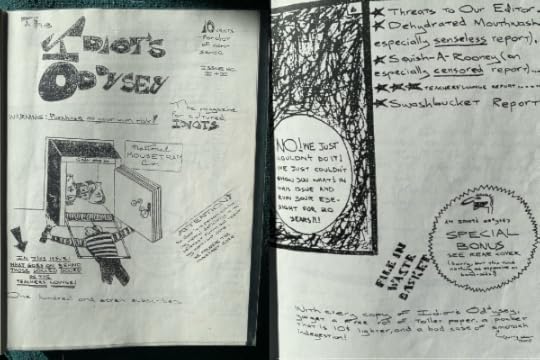 The
Idiot's
Odyssey
10 cents
ISSUE NO.
The magazine
for cultured
IDIOTS
WARNING: Purchase at your own risk!
National
MOUSETRAP
Co.
IN THIS ISSUE:
WHAT GOES ON BEHIND
THOSE CLOSED DOORS
IN THE
TEACHERS LOUNGE!
One hundred and seven subscribers
NO! WE JUST
COULDN'T DO IT!
WE JUST COULDN'T
SHOW YOU WHAT'S IN
THIS ISSUE AND
RUIN YOUR EYE-
SIGHT FOR 20
YEARS!!
Threats to Our Editor
Dehydrated Mouthwash
especially senseless report)
Squish-A-Rooney (an
especially censored report)
TEACHERS LOUNGE REPORT
Swashbucket Report
FILE IN
WASTE
BASKET
AN IDIOT'S ODYSSEY
SPECIAL
BONUS
SEE REAR COVER
With every copy of Idiot's Odyssey,
you get a free roll of toilet paper, a pocket
that is 10¢ lighter, and a bad case of stomach
indigestion!